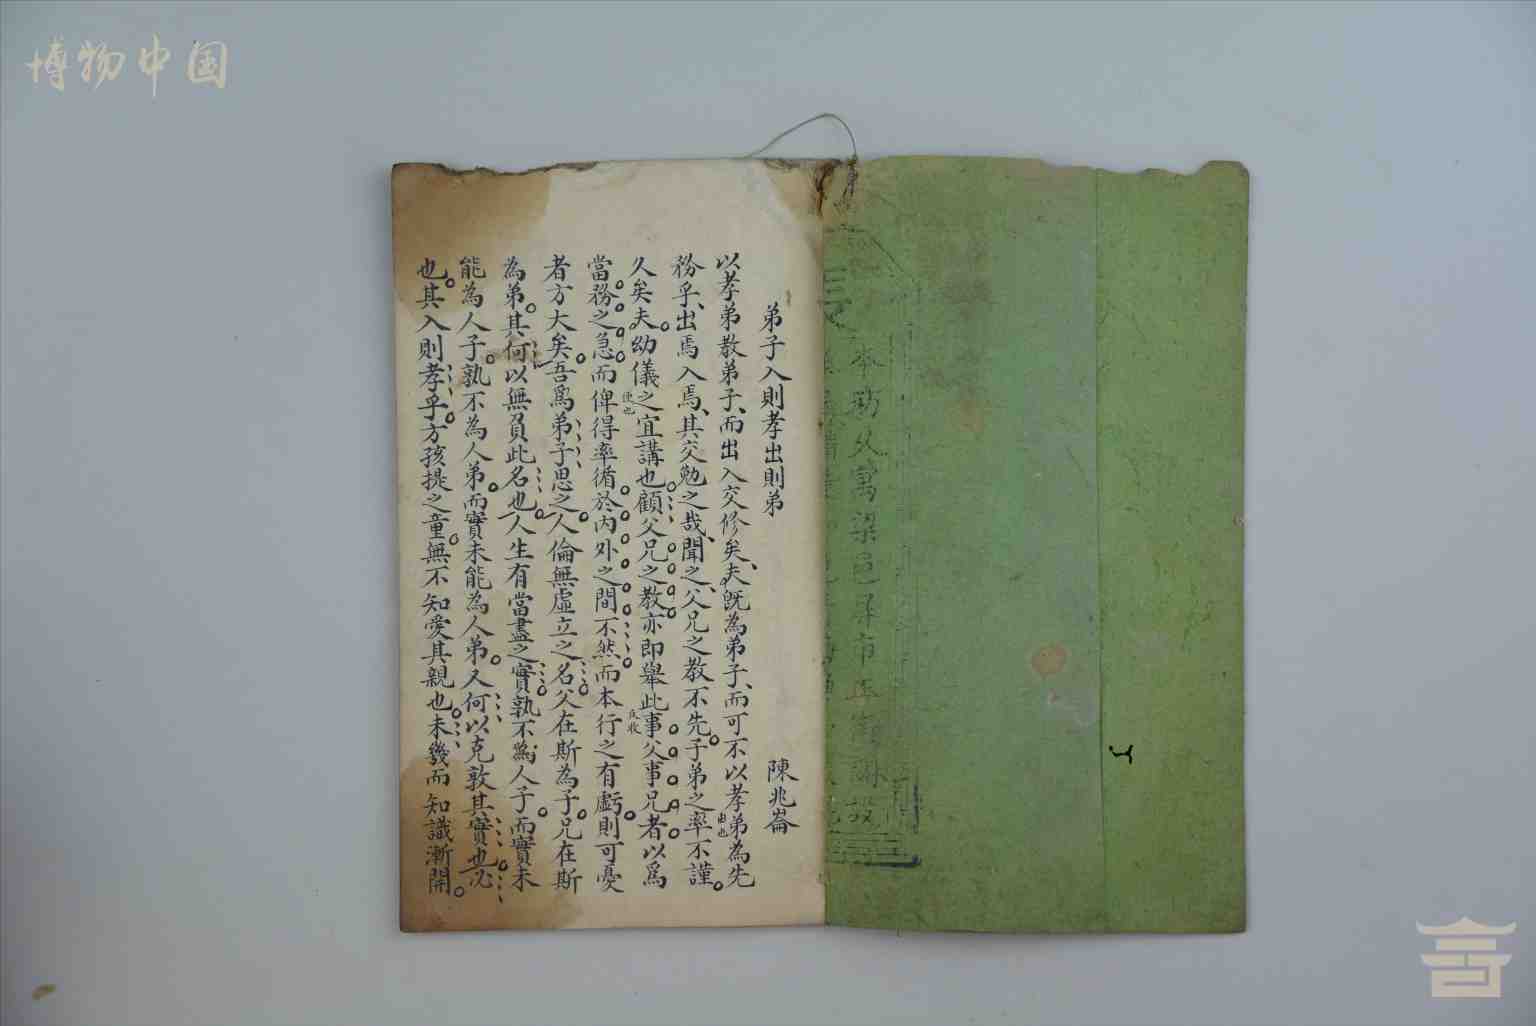 博物中国
弟子入則孝出則弟
陳兆崙
以孝弟教弟子、而出入交修矣、夫既為弟子、而可不以孝弟為先
務乎、出焉入焉、其交勉之哉、聞之、父兄之教不先。子弟之率不謹。
久矣夫。幼儀之宜講也顧父兄之教亦即舉此事父事兄者以為
當務之急而俾得率循於內外之間不然而本行之有虧則可憂
者方大矣。吾為弟子思之。人倫無虛立之名父在斯為子。兄在斯
為弟。其何以無負此名也。人生有當盡之實孰不為人子。而實未
能為人子。孰不為人弟。而實未能為人弟。又何以克敦其實也。必
也。其入則孝乎。方孩提之童。無不知愛其親也。未幾而知識漸開。
由也
本坊久寓梁邑